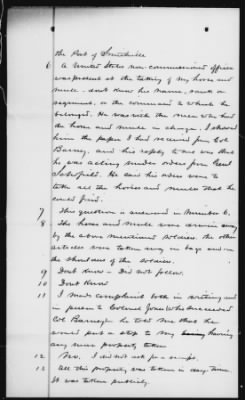 the Post of Smithville
6 A United States non-commissioned officer
was present at the taking of my horse and
mule - dont know his name, rank or
regiment, or the command to which he
belonged. He was with the men who had
the horse and mule in charge. I showed
him the paper I had received from Col
Barney, and his reply to me was that
he was acting under orders from Genl
Schofield. He said his orders were to
take all the horses and mules that he
could find.
7 This question is answered in Number 6.
8 The horse and mule were driven away
by the above mentioned soldiers. the other
articles were taken away in bags and on
the shoulders of the soldiers.
9 Dont Know - Did not follow.
10 Dont Know
11 I made complaint both in writing and
in person to Colonel Jones who succeeded
Col Barney he told me that he
would put a stop to my having
any more property taken
12 No. I did not ask for a receipt.
13 All this property was taken in day time.
It was taken publicly.